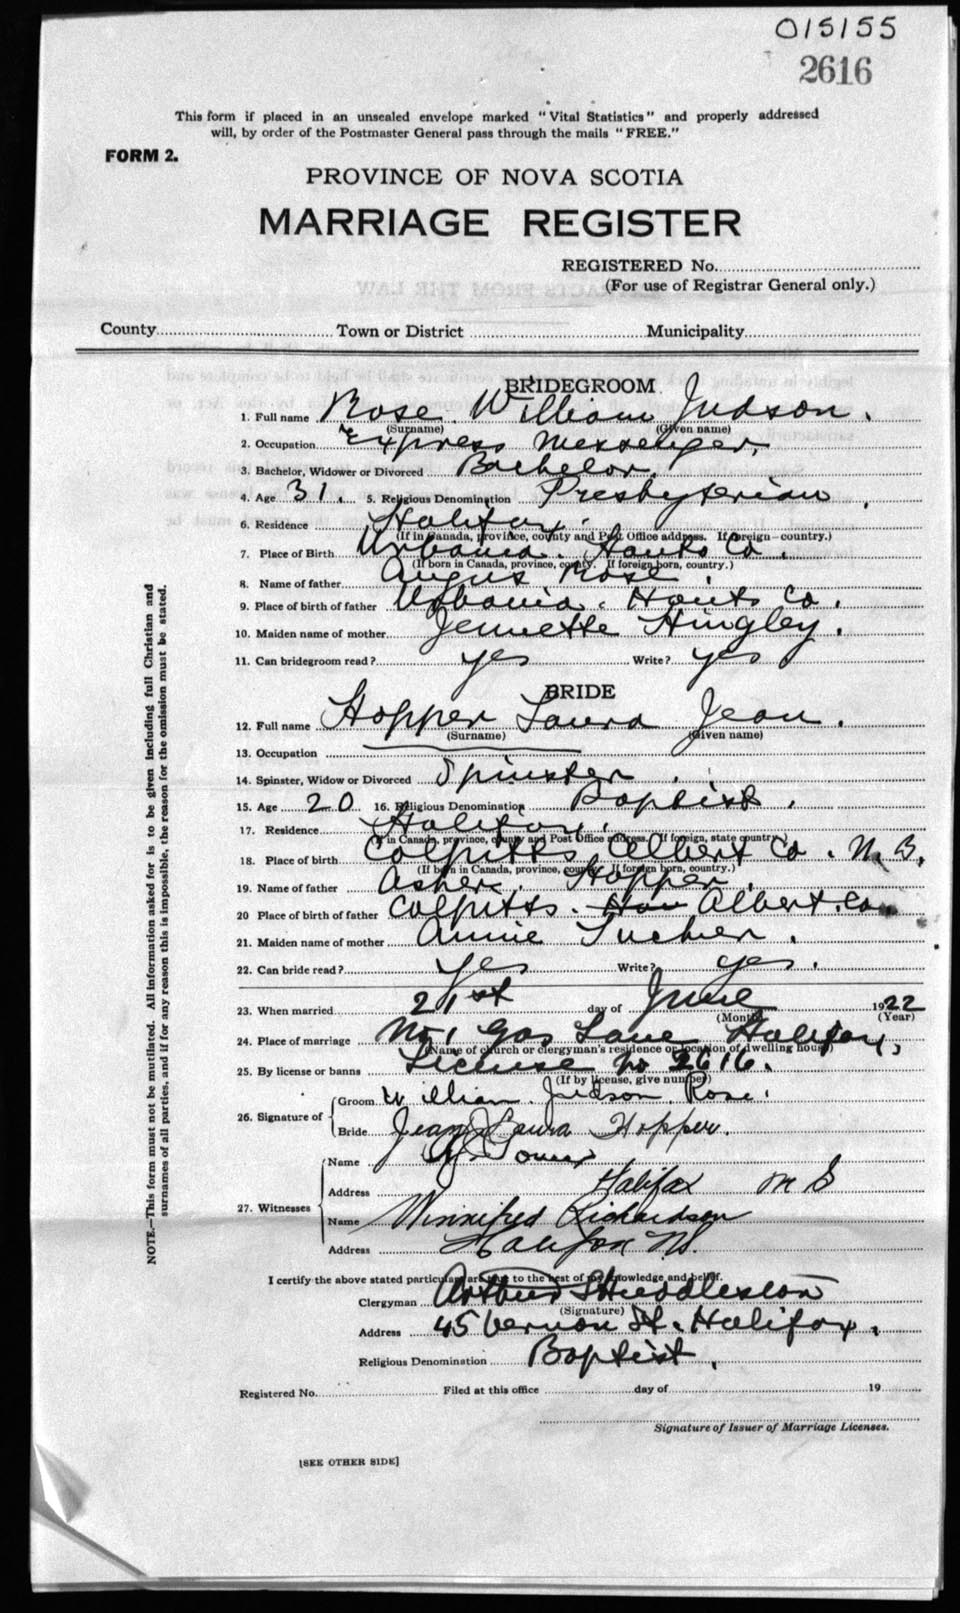 015155
2616
This form if placed in an unsealed envelope marked "Vital Statistics" and properly addressed
will, by order of the Postmaster General pass through the mails "FREE."
FORM 2.
PROVINCE OF NOVA SCOTIA
MARRIAGE REGISTER
REGISTERED No.
(For use of Registrar General only.)
County Town or District Municipality
BRIDEGROOM
1. Full name Rose William Judson.
(Surname) (Given name)
2. Occupation Express Messenger,
3. Bachelor, Widower or Divorced Bachelor.
4. Age 31. 5. Religious Denomination Presbyterian.
6. Residence Halifax.
(If in Canada, province, county and Post Office address. If foreign—country.)
7. Place of Birth Urbania. Hants Co.
(If born in Canada, province, county. If foreign born, country.)
8. Name of father Angus Rose.
9. Place of birth of father Urbania. Hants Co.
10. Maiden name of mother Jennette Hingley.
11. Can bridegroom read? yes Write? yes
BRIDE
12. Full name Hopper Laura Jean.
(Surname) (Given name)
13. Occupation
14. Spinster, Widow or Divorced Spinster.
15. Age 20 16. Religious Denomination Baptist.
17. Residence Halifax.
(If in Canada, province, county and Post Office address. If foreign, state country.)
18. Place of birth Colpitts Albert Co. N.B.
(If born in Canada, province, county. If foreign born, country.)
19. Name of father Asher. Hopper.
20 Place of birth of father Colpitts. Han Albert. Co
21. Maiden name of mother Annie Tucker.
22. Can bride read? yes Write? yes.
23. When married 21st day of June 1922
(Month) (Year)
24. Place of marriage No. 1 Gas Lane Halifax,
(Name of church or clergyman's residence or location of dwelling house)
25. By license or banns License No 2616.
(If by license, give number)
26. Signature of Groom William Judson Rose.
Bride Jean Laura Hopper.
27. Witnesses Name
Address Halifax N S
Name Winnifred Richardson
Address Halifax NS.
I certify the above stated particulars are true to the best of my knowledge and belief.
Clergyman Arthur S Huddleston
(Signature)
Address 45 Vernon St. Halifax.
Religious Denomination Baptist.
Registered No. Filed at this office day of 19
Signature of Issuer of Marriage Licenses.
[SEE OTHER SIDE]
NOTE.—This form must not be mutilated. All information asked for is to be given including full Christian and
surnames of all parties, and if for any reason this is impossible, the reason for the omission must be stated.